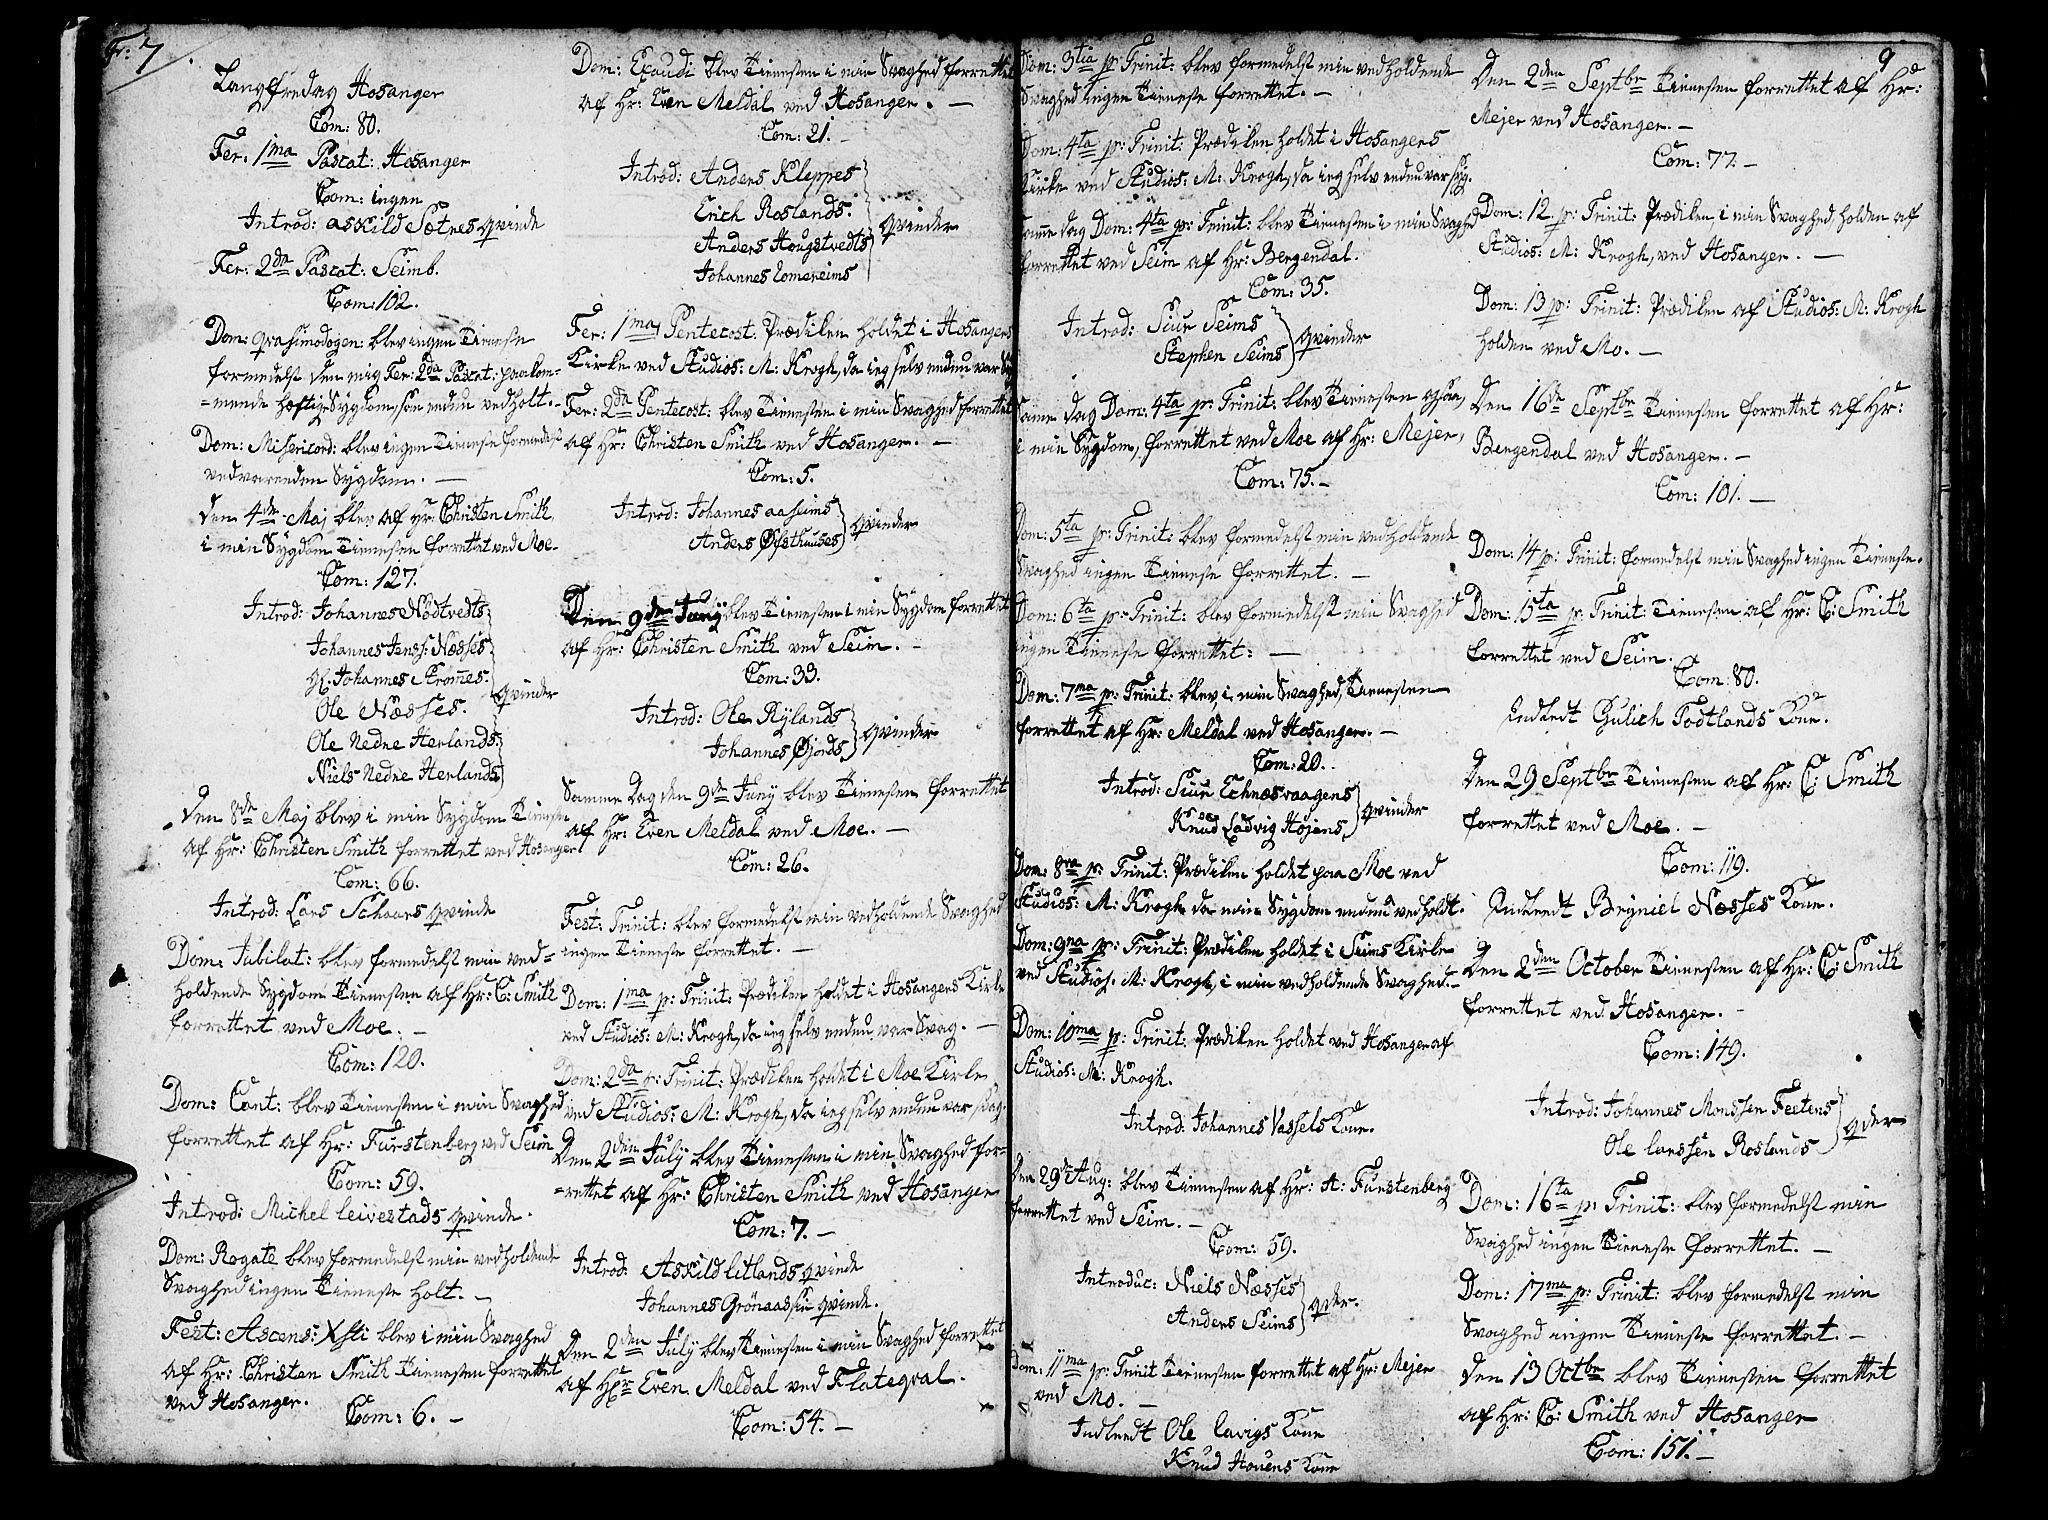 Fr: 7.
Langfredag Hosanger
Com: 80.
Fer: 1ma Pascat: Hosanger
Com: ingen
Introd: Askild Sætres qvinde
Fer: 2da Pascat: Seimb.
Com: 102.
Dom: Qvasimodogen: blev ingen Tieneste
formedelst den mig Fer: 2da Pascat: paakom-
=mende hæftige Sygdom, som endnu vedholt.
Dom: Misericord: blev ingen Tieneste formedelst
vedvarenden Sygdom. —
Den 4de Maj blev af Hr: Christen Smith,
i min Sygdom Tienesten forrettet ved Moe.
Com: 127.
Introd: Johannes Nödtvedts
Johannes Jenss: Næsses
Johannes Stromes.
Ole Næsses.
Ole Nedne Herlands
Niels Nedne Herlands
qvinder
Den 8de Maj blev i min Sygdom Tienesten
af Hr: Christen Smith forrettet ved Hosanger
Com: 66.
Introd: Lars Schaars qvinde
Dom: Jubilat: blev formedelst min ved=
holdende Sygdom Tienesten af Hr: C: Smith
forrettet ved Moe. —
Com: 120.
Dom: Cant: blev Tienesten i min Svaghed
forrettet af Hr: Furstenberg ved Seim
Com: 59.
Introd: Michel Leivestads qvinde.
Dom: Rogate blev formedelst min vedholdende
Svaghed ingen Tieneste holt. —
Fest: Ascens: Xsti blev i min Svaghed
af Hr: Christen Smith Tienesten forrettet
ved Hosanger.
Com: 6. —
Dom: Exaudi blev Tienesten i min Svaghed forrettet
af Hr: Even Meldal ved Hosanger. —
Com: 21. —
Introd: Anders Kleppes
Erich Roslands.
Anders Hougstvedts
Johannes Eomereims
qvinder
Fer: 1ma Pentecost: Prædiken holdet i Hosangers
Kirke ved Studios: M: Krogh, da ieg selv endnu var
Fer: 2da Pentecost: blev Tienesten i min Svaghed forrettet
af Hr: Christen Smith ved Hosanger. —
Com: 5.
Introd: Johannes Aaseims
Anders Øfsthuuses
qvinder
Den 9de Junij blev Tienesten i min Sygdom forrettet
af Hr: Christen Smith ved Seim. —
Com: 33.
Introd: Ole Rylands
Johannes Gjords
qvinder
Samme Dag den 9de Junij blev Tienesten forrettet
af Hr: Even Meldal ved Moe. —
Com: 26.
Fest: Trinit: blev formedelst min vedholdende Svaghed
ingen Tieneste forrettet. —
Dom: 1ma p: Trinit: Prædiken holdet i Hosangers Kirke
ved Studios: M: Krogh, da ieg selv endnu var Svag. —
Dom: 2da p: Trinit: Prædiken holdet i Moe Kirke
ved Studios: M: Krogh, da ieg selv endnu var svag.
Den 2den Julij blev Tienesten i min Svaghed for-
=rettet af Hr: Christen Smith ved Hosanger
Com: 7. —
Introd: Askild Litlands qvinde
Johannes Grönaases qvinde.
Den 2den Julij blev Tienesten i min Svaghed forrettet
af Hr: Even Meldal ved Flateqval.
Com: 54. —
Dom: 3tia p: Trinit: blev formedelst min vedholdende
Svaghed ingen Tieneste forrettet. —
Dom: 4ta p: Trinit: Prædiken holdet i Hosangers
Kirke ved Studios: M: Krogh, da ieg selv endnu var syg.
Same dag Dom: 4ta p: Trinit: blev Tienesten i min Svaghed
forrettet ved Seim af Hr: Bergendal.
Com: 35.
Introd: Siur Seims
Stephen Seims
qvinder
Same Dag Dom: 4ta p: Trinit: blev Tienesten ogsaa,
i min Sygdom, forrettet ved Moe af Hr: Mejer,
Com: 75. —
Dom: 5ta p: Trinit: blev formedelst min vedholdende
Svaghed ingen Tieneste forrettet. —
Dom: 6ta p: Trinit: blev formedelst min Svaghed
ingen Tieneste forrettet: —
Dom: 7ma p: Trinit: blev, i min Svaghed, Tienesten
forrettet af Hr: Meldal ved Hosanger. —
Com: 20.
Introd: Siur Echnæsvaagens
Knud Ladvig Højens
qvinder
Dom: 8va p: Trinit: Prædiken holdet paa Moe ved
Studios: M: Krogh da min Sygdom endnu vedholdt.
Dom: 9na p: Trinit: Prædiken holdet i Seims Kirke
ved Studios: M: Krogh, i min vedholdende Svaghed. —
Dom: 10ma p: Trinit: Prædiken holdet ved Hosanger af
Studios: M: Krogh.
Introd: Johannes Vassels Kone.
Den 29de Aug: blev Tienesten af Hr: A: Furstenberg
forrettet ved Seim. —
Com: 59.
Introduc: Niels Næsses
Anders Seims
qder.
Dom: 11ma p: Trinit Tienesten forrettet af Hr: Mejer
ved Mo. —
Indleedt Ole Lavigs Kone
Knud Houens Kone
9
Den 2den Septbr Tienesten forrettet af Hr:
Mejer ved Hosanger. —
Com: 77. —
Dom: 12 p: Trinit: Prædiken i min Svaghed holden af
Studios: M: Krogh, ved Hosanger. —
Dom: 13 p: Trinit: Prædiken af Studios: M: Krogh
holden ved Mo. —
Den 16de Septbr Tienesten forrettet af Hr:
Bergendal ved Hosanger. —
Com: 101. —
Dom: 14 p: Trinit: formedelst min Svaghed ingen Tieneste.
Dom: 15ta p: Trinit: Tienesten af Hr: C: Smith
forrettet ved Seim.
Com: 80.
Indledt Gulich Todtlands Kone.
Den 29 Septbr Tienesten af Hr: C: Smith
forrettet ved Moe. —
Com: 119.
Indleedt Bryniel Næsses Kone.
Den 2den October Tienesten af Hr: C: Smith
forrettet ved Hosanger. —
Com: 149.
Introd: Johannes Monssen Festens
Ole Larssen Roslands
qder
Dom: 16ta p: Trinit: blev formedelst min
Svaghed ingen Tieneste forrettet. —
Dom: 17ma p: Trinit: blev formedelst min
Svaghed ingen Tieneste forrettet. —
Den 13 Octbr blev Tienesten forrettet
af Hr: C: Smith ved Hosanger
Com: 151. —